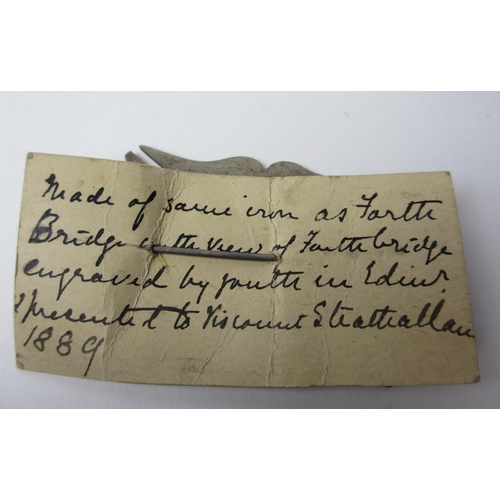 Made of same iron as Forth
Bridge with view of Forth bridge
engraved by youth in Edinr.
& presented to Viscount Strathallan
1889